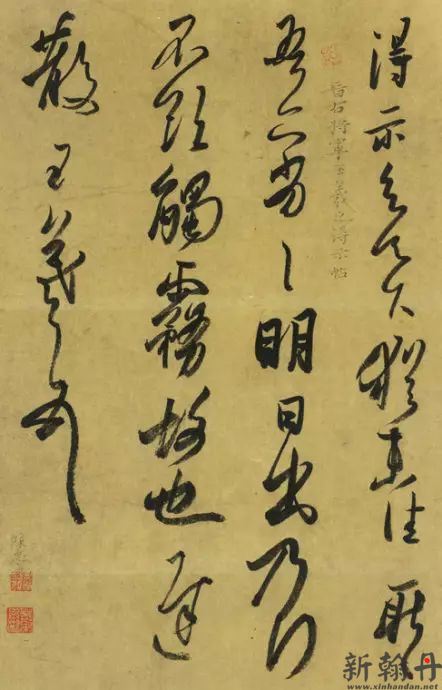 得示知足下猶未佳耿
晉右將軍王羲之得示帖
吾亦劣〻明日出乃行
不欲觸霧故也遲
散王羲之頓首
新翰丹
www.xinhandan.net